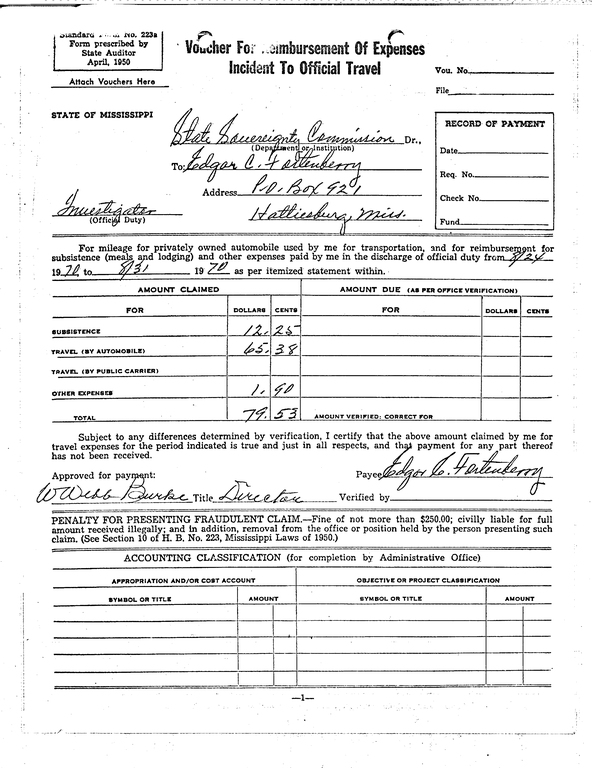 No. 223a
Form prescribed by
State Auditor
April, 1950
Attach Vouchers Here
Voucher For Reimbursement Of Expenses
Incident To Official Travel
Vou. No.
File
STATE OF MISSISSIPPI
State Sovereignty Commission Dr.,
(Department or Institution)
To: Edgar C. Fortenberry
Address P.O. Box 921
Investigator
(Official Duty)
Hattiesburg, Miss.
RECORD OF PAYMENT
Date
Req. No.
Check No.
Fund
For mileage for privately owned automobile used by me for transportation, and for reimbursement for
subsistence (meals and lodging) and other expenses paid by me in the discharge of official duty from 8/24
1970 to 8/31 1970 as per itemized statement within.
AMOUNT CLAIMED AMOUNT DUE (AS PER OFFICE VERIFICATION)
FOR DOLLARS CENTS FOR DOLLARS CENTS
SUBSISTENCE 12.25
TRAVEL (BY AUTOMOBILE) 65.38
TRAVEL (BY PUBLIC CARRIER)
OTHER EXPENSES 1.90
TOTAL 79.53 AMOUNT VERIFIED: CORRECT FOR
Subject to any differences determined by verification, I certify that the above amount claimed by me for
travel expenses for the period indicated is true and just in all respects, and that payment for any part thereof
has not been received.
Approved for payment: Payee Edgar C. Fortenberry
W Webb Burke Title Director Verified by
PENALTY FOR PRESENTING FRAUDULENT CLAIM.—Fine of not more than $250.00; civilly liable for full
amount received illegally; and in addition, removal from the office or position held by the person presenting such
claim. (See Section 10 of H. B. No. 223, Mississippi Laws of 1950.)
ACCOUNTING CLASSIFICATION (for completion by Administrative Office)
APPROPRIATION AND/OR COST ACCOUNT OBJECTIVE OR PROJECT CLASSIFICATION
SYMBOL OR TITLE AMOUNT SYMBOL OR TITLE AMOUNT
—1—